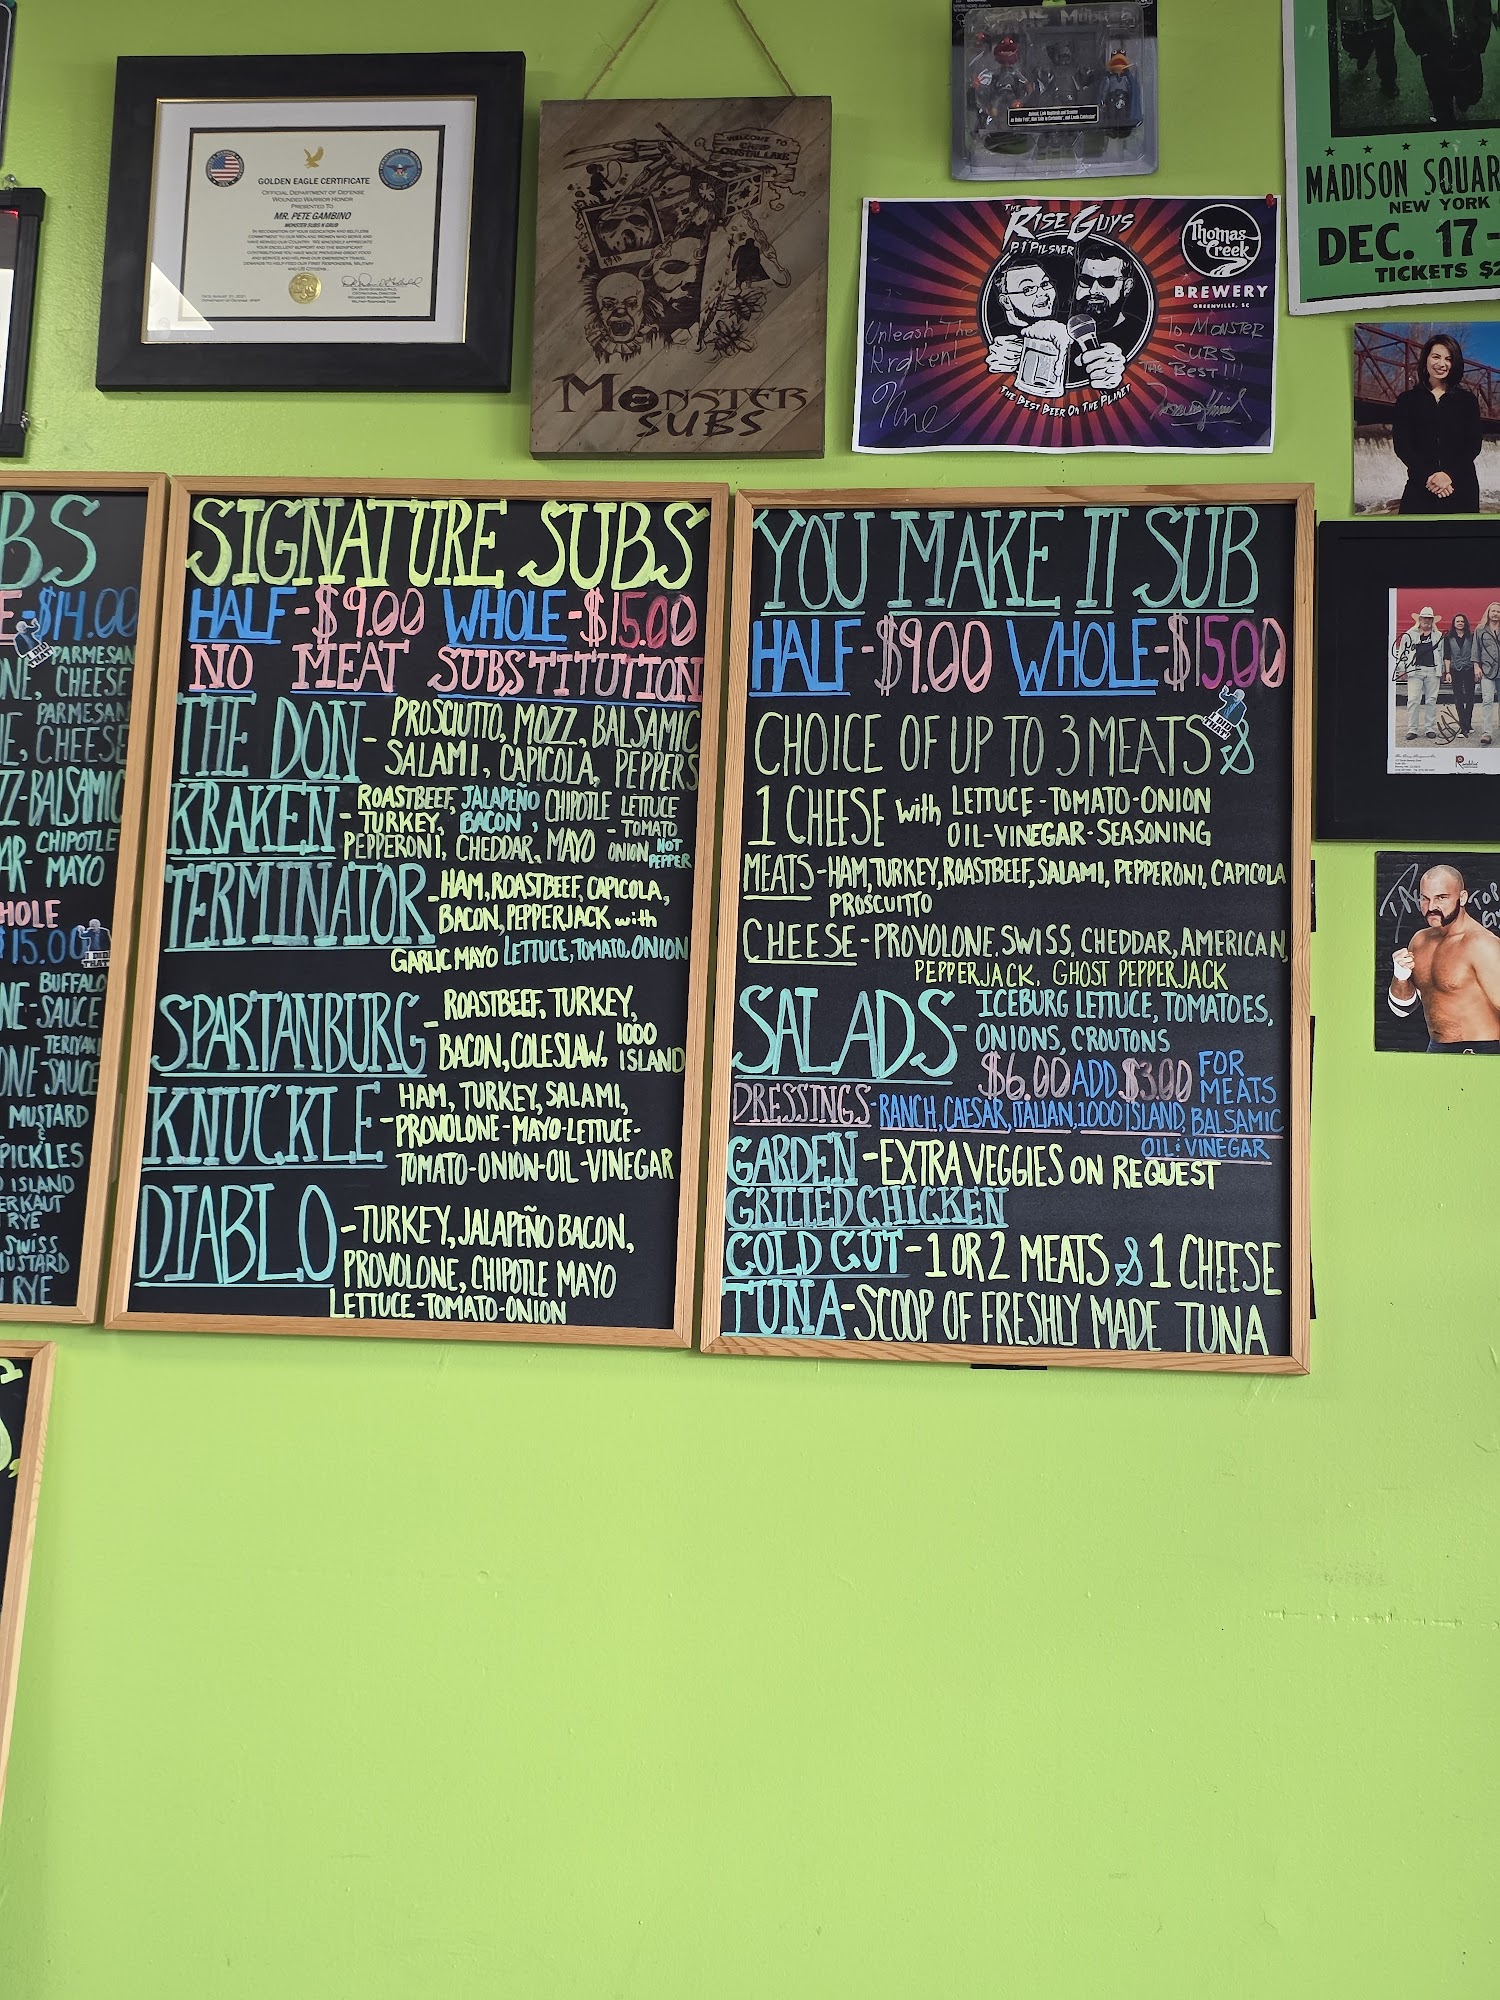 GOLDEN EAGLE CERTIFICATE
OFFICIAL DEPARTMENT OF DEFENSE
WOUNDED WARRIOR HONOR
PRESENTED TO
MR. PETE GAMBINO
MONSTER SUBS N GRUB
WELCOME TO
CAMP
CRYSTAL LAKE
MONSTER
SUBS
THE
RISE GUYS
P1 PILSNER
Thomas
Creek
BREWERY
GREENVILLE, SC
Unleash The
Kraken!
To MONSTER
SUBS
THE BEST!!!
THE BEST BEER ON THE PLANET
MADISON SQUAR
NEW YORK
DEC. 17-
TICKETS $2
BS
E-$14.00
I DID
THAT!
PARMESAN
NE, CHEESE
PARMESAN
E, CHEESE
Z-BALSAMIC
CHIPOTLE
AR- MAYO
HOLE
$15.00
I DID
THAT!
BUFFALO
NE-SAUCE
TERIYAKI
ONE-SAUCE
MUSTARD
&
PICKLES
ISLAND
ERKRAUT
RYE
SWISS
MUSTARD
RYE
SIGNATURE SUBS
HALF-$9.00 WHOLE-$15.00
NO MEAT SUBSTITUTION
THE DON - PROSCIUTTO, MOZZ, BALSAMIC
SALAMI, CAPICOLA, PEPPERS
KRAKEN - ROASTBEEF, JALAPEÑO CHIPOTLE LETTUCE
TURKEY, BACON, - TOMATO
PEPPERONI, CHEDDAR, MAYO - ONION HOT
PEPPER
TERMINATOR - HAM, ROASTBEEF, CAPICOLA,
BACON, PEPPERJACK with
GARLIC MAYO LETTUCE, TOMATO, ONION
SPARTANBURG - ROASTBEEF, TURKEY,
BACON, COLESLAW, 1000
ISLAND
KNUCKLE - HAM, TURKEY, SALAMI,
PROVOLONE-MAYO-LETTUCE-
TOMATO-ONION-OIL-VINEGAR
DIABLO - TURKEY, JALAPEÑO BACON,
PROVOLONE, CHIPOTLE MAYO
LETTUCE-TOMATO-ONION
YOU MAKE IT SUB
HALF-$9.00 WHOLE-$15.00
I DID
THAT!
CHOICE OF UP TO 3 MEATS &
1 CHEESE with LETTUCE-TOMATO-ONION
OIL-VINEGAR-SEASONING
MEATS-HAM, TURKEY, ROASTBEEF, SALAMI, PEPPERONI, CAPICOLA
PROSCUITTO
CHEESE-PROVOLONE, SWISS, CHEDDAR, AMERICAN,
PEPPERJACK, GHOST PEPPERJACK
SALADS- ICEBURG LETTUCE, TOMATOES,
ONIONS, CROUTONS
$6.00 ADD $3.00 FOR
MEATS
DRESSINGS-RANCH, CAESAR, ITALIAN, 1000 ISLAND, BALSAMIC
OIL & VINEGAR
GARDEN - EXTRA VEGGIES ON REQUEST
GRILLED CHICKEN
COLD CUT - 1 OR 2 MEATS & 1 CHEESE
TUNA-SCOOP OF FRESHLY MADE TUNA